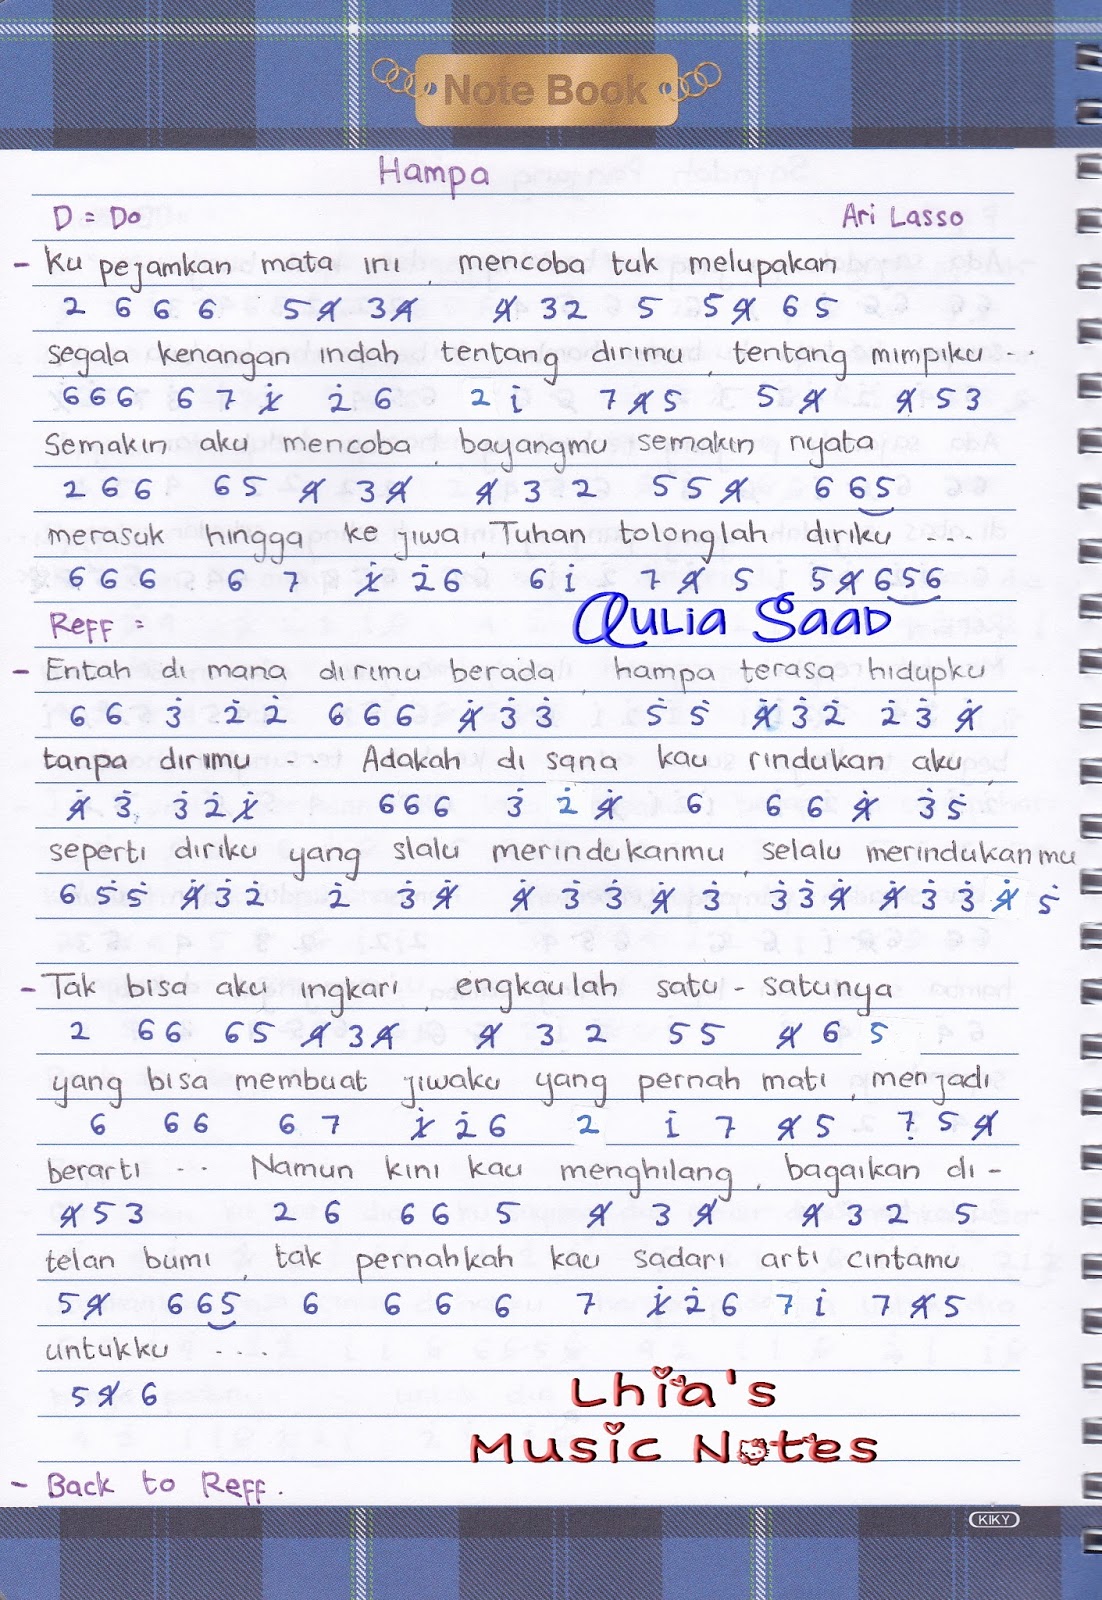 Note Book
Hampa
D = Do Ari Lasso
- Ku pejamkan mata ini, mencoba tuk melupakan
2 6 6 6 5 4̸ 3 4̸ 4̸ 3 2 5 5 4̸ 6 5
segala kenangan indah, tentang dirimu, tentang mimpiku ...
6 6 6 6 7 1̸̇ 2̇ 6 2̇ 1̇ 7 4̸ 5 5 4̸ 4̸ 5 3
Semakin aku mencoba, bayangmu semakin nyata
2 6 6 6 5 4̸ 3 4̸ 4̸ 3 2 5 5 4̸ 6 6 5
merasuk hingga ke jiwa, Tuhan tolonglah diriku ...
6 6 6 6 7 1̸̇ 2̇ 6 6 1̇ 7 4̸ 5 5 4̸ 6 6
Aulia Saad
Reff =
- Entah di mana dirimu berada, hampa terasa hidupku
6 6 3̇ 2̇ 2̇ 6 6 6 4̸̇ 3̇ 3̇ 5̇ 5̇ 4̸̇ 3̇ 2̇ 2̇ 3̇ 4̸̇
tanpa dirimu ... Adakah di sana kau rindukan aku,
4̸̇ 3̇ 3̇ 2̇ 1̸̇ 6 6 6 3̇ 2̇ 4̸̇ 6 6 6 4̸̇ 3̇ 5̇
seperti diriku yang slalu merindukanmu, selalu merindukanmu
6 5̇ 5̇ 4̸̇ 3̇ 2̇ 2̇ 3̇ 4̸̇ 4̸̇ 3̇ 3̇ 4̸̇ 3̇ 3̇ 3̇ 4̸̇ 4̸̇ 3̇ 3̇ 4̸̇ 5̇
- Tak bisa aku ingkari, engkaulah satu - satunya
2 6 6 6 5 4̸ 3 4̸ 4̸ 3 2 5 5 4̸ 6 5
yang bisa membuat jiwaku yang pernah mati, menjadi
6 6 6 6 7 1̸̇ 2̇ 6 2̇ 1̇ 7 4̸ 5 7 5 4̸
berarti ... Namun kini kau menghilang, bagaikan di -
4̸ 5 3 2 6 6 6 5 4̸ 3 4̸ 4̸ 3 2 5
telan bumi, tak pernahkah kau sadari arti cintamu
5 4̸ 6 6 5 6 6 6 6 7 1̸̇ 2̇ 6 7 1̇ 7 4̸ 5
untukku ....
5 4̸ 6
Lhia's
Music Notes
- Back to Reff.
KIKY